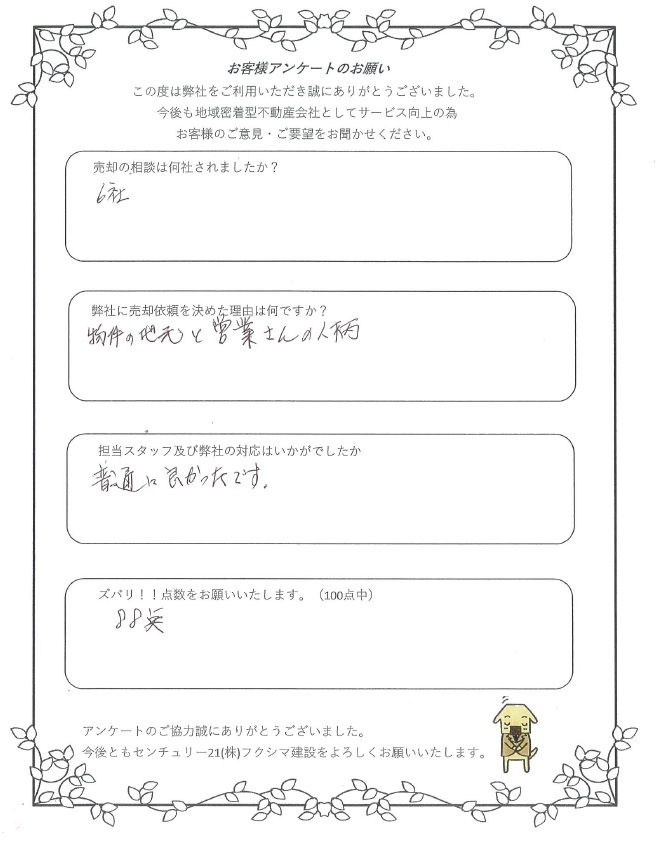 お客様アンケートのお願い
この度は弊社をご利用いただき誠にありがとうございました。
今後も地域密着型不動産会社としてサービス向上の為
お客様のご意見・ご要望をお聞かせください。
売却の相談は何社されましたか？
6社
弊社に売却依頼を決めた理由は何ですか？
物件の地元と営業さんの人柄
担当スタッフ及び弊社の対応はいかがでしたか
普通に良かったです。
ズバリ！！点数をお願いいたします。（100点中）
88点
アンケートのご協力誠にありがとうございました。
今後ともセンチュリー21(株)フクシマ建設をよろしくお願いいたします。